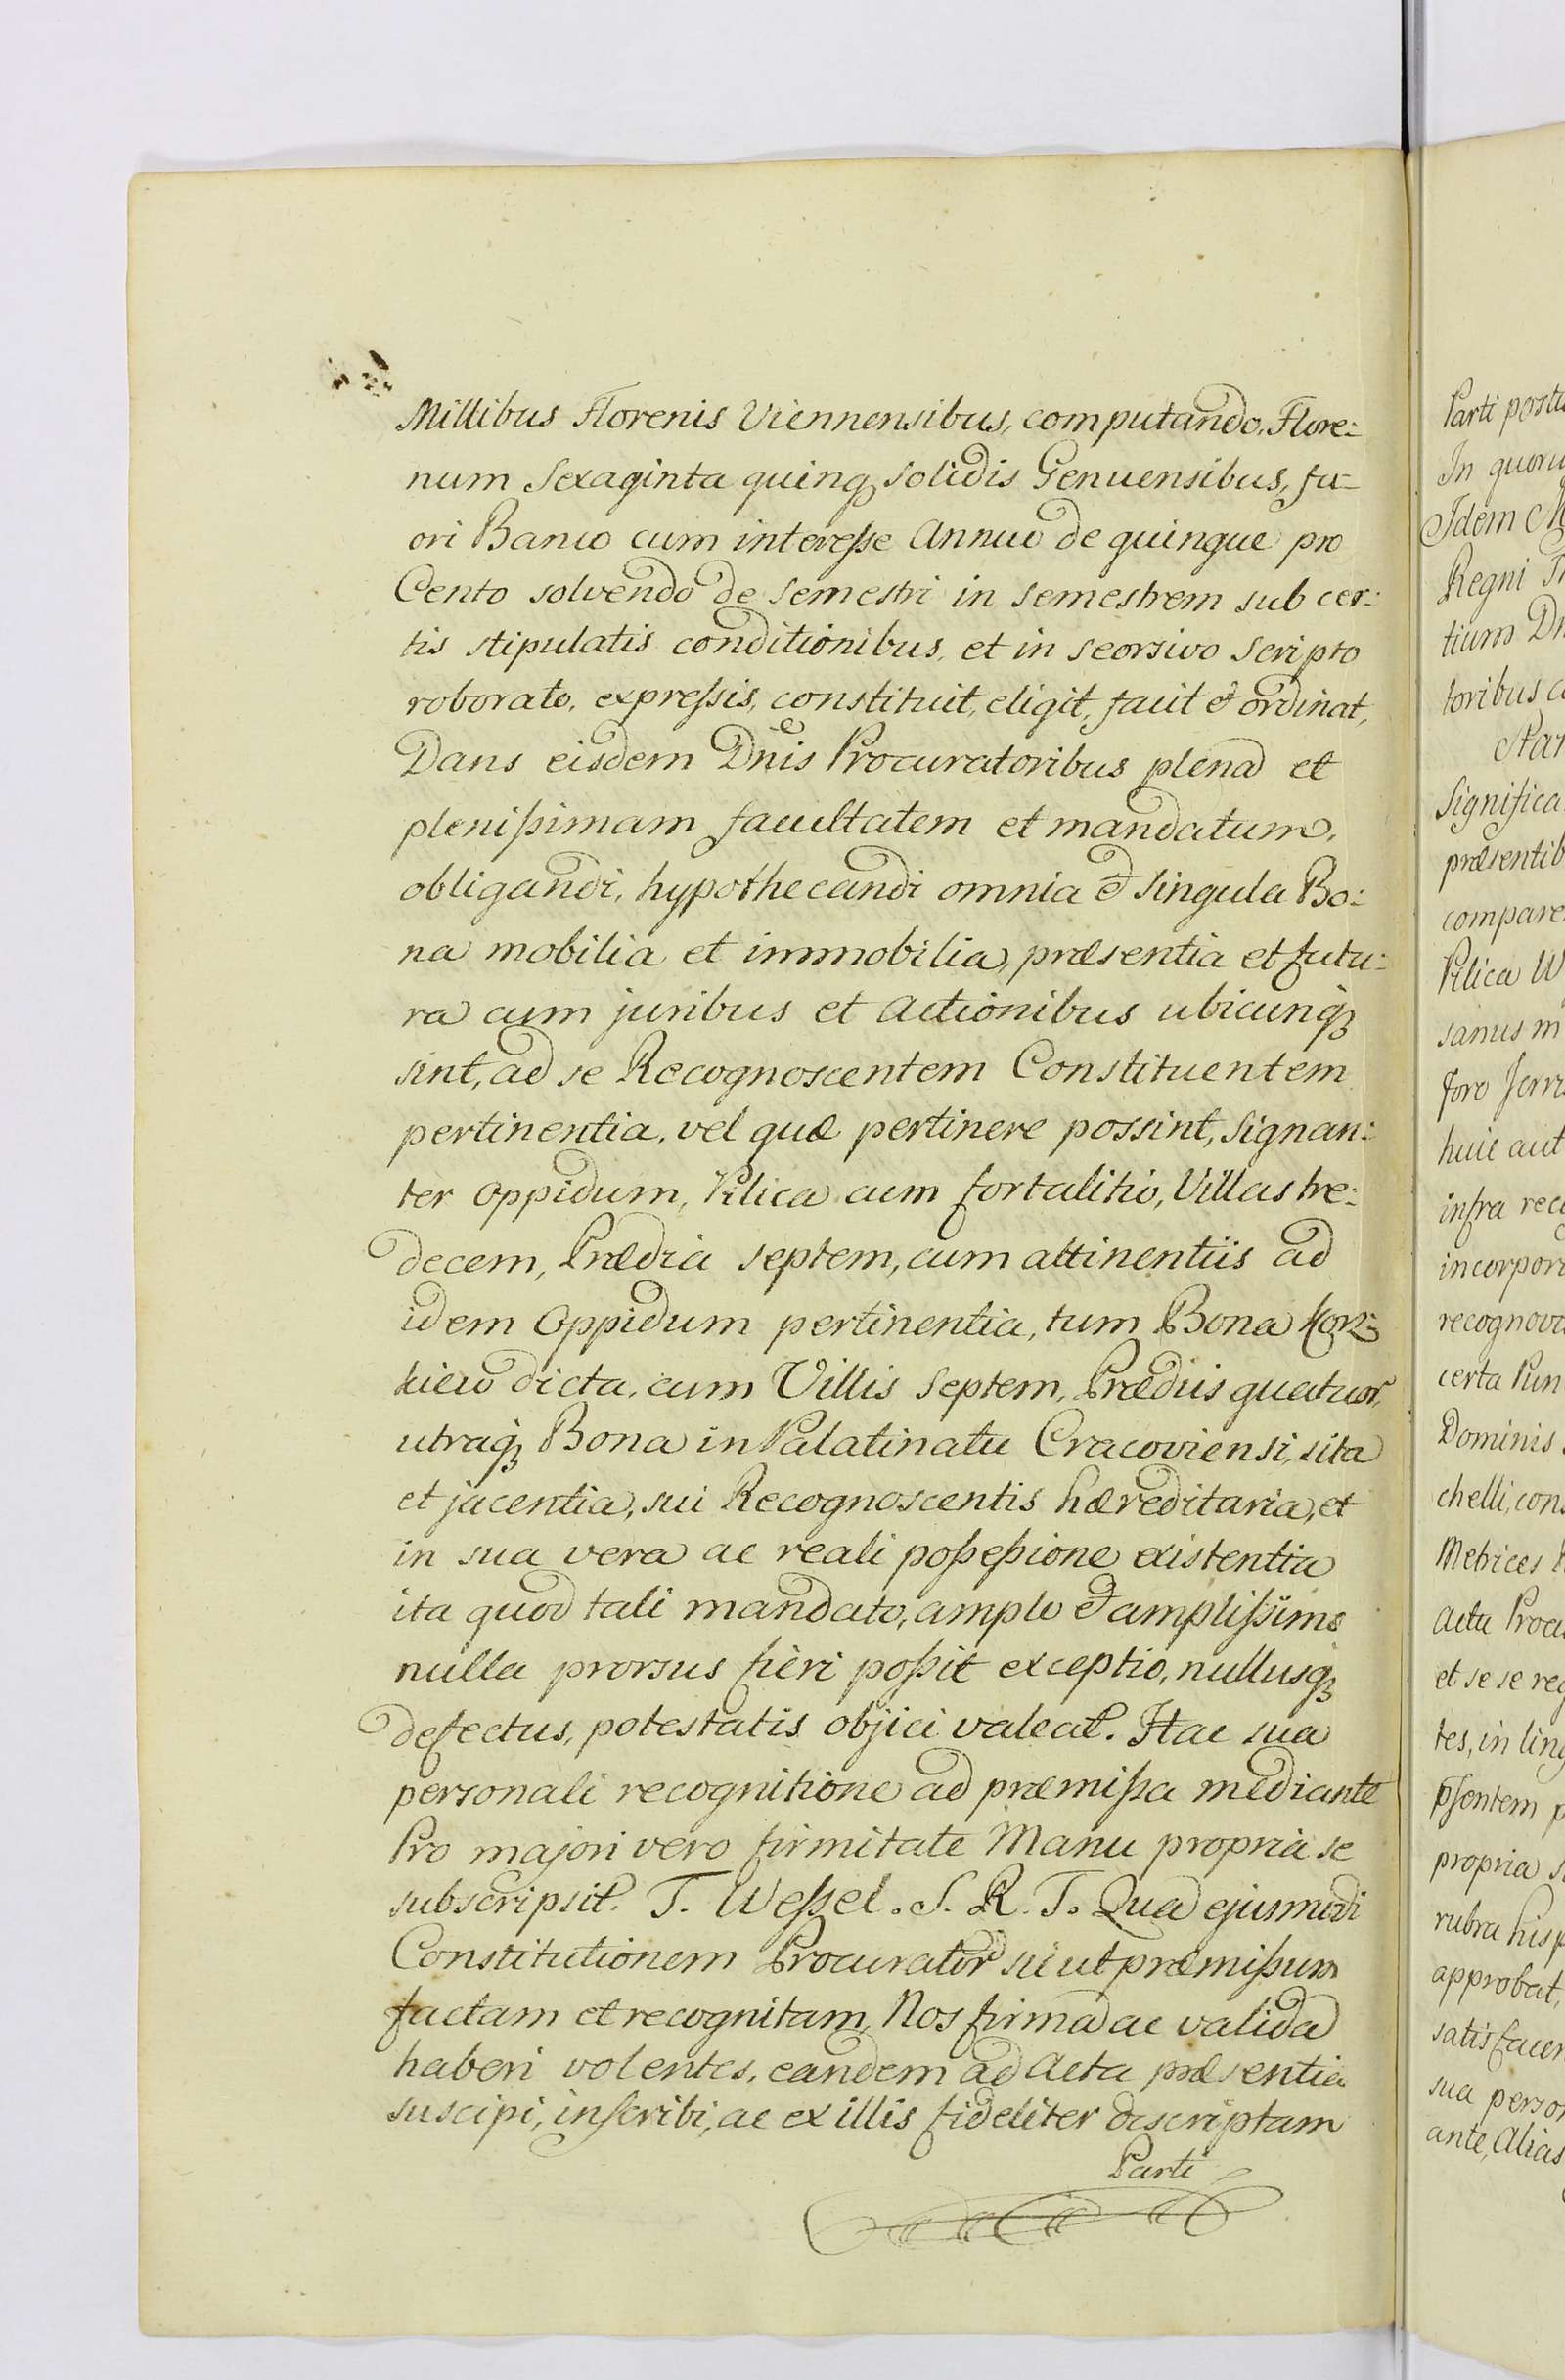 Millibus Florenis Viennensibus, computando, Flore:
num Sexaginta quinq3 solidis Genuensibus, fu-
ori Banco cum interesse Annuo de quinque pro
Cento solvendo de semestri in semestrem sub cer:
tis stipulatis conditionibus, et in seorsivo Scripto
roborato, expressis, constituit, eligit, facit & ordinat,
Dans eisdem Dnis Procuratoribus plenã et
plenissimam facultatem et mandatum,
obligandi, hypothecandi omnia & singula Bo:
na mobilia et immobilia, præsentia et futu:
ra cum juribus et Actionibus ubicunq3
sint, ad se Recognoscentem Constituentem
pertinentia, vel quæ pertinere possint, signan:
ter Oppidum, Pilica cum fortalitio, Villas tre:
decem, Prædia septem, cum attinentiis ad
idem Oppidum pertinentia, tum Bona Korz:
kiew dicta, cum Villis Septem, Prædiis quatuor,
utraq3 Bona in Palatinatu Cracoviensi, sita
et jacentia, sui Recognoscentis hæreditaria, et
in sua vera ac reali possessione existentia
ita quod tali mandato, amplo & amplissimo
nulla prorsus fieri possit exceptio, nullusq3
defectus, potestatis objici valeat. Hac sua
personali recognitione ad præmissa mediante
Pro majori vero firmitate Manu propria se
subscripsit. T. Wessel. S. R. T. Quã ejusmodi
Constitutionem Procurator su ut præmissum
factam et recognitam, Nos firmã ac validã
haberi volentes, eandem ad Acta præsentia
suscipi, inscribi, ac ex illis fideliter descriptam
Parti
Parti
In
Idem
Regni
tium
toribus
Significa
præsentib
compare
Pilica W
sanus m
foro
huic aut
infra
incorpor
recognov
certa Pun
Dominis
chelli, con
Metrices
Acta Procu
et se se rec
tes, in ling
psentem p
propria
rubra hisp
approbat,
satisfacer
sua person
ante, Alias